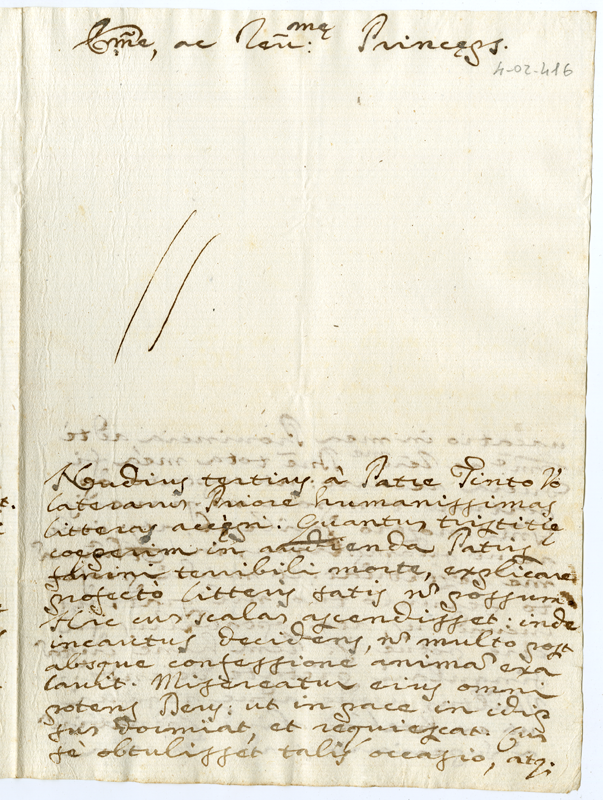 Em̃e, ac Reu̅:mę Princeps.
4-02-416
Nudius tertius à Patre Pinto Vo
laterano Priore humanissimas
litteras accepi. Quantus tristitię
coeperim in audienda Patris
terribili morte, explicare
profecto litteris satis nõ possum
Hic cu̅ scalas ascendisset: inde
incautus decidens, nõ multo post
absque confessione anima̅ exa
lauit. Misereatur eius omni
potens Deus: ut in pace in idip
sum dormiat, et requiescat. Cu̅
se obtulisset talis occasio, atq;